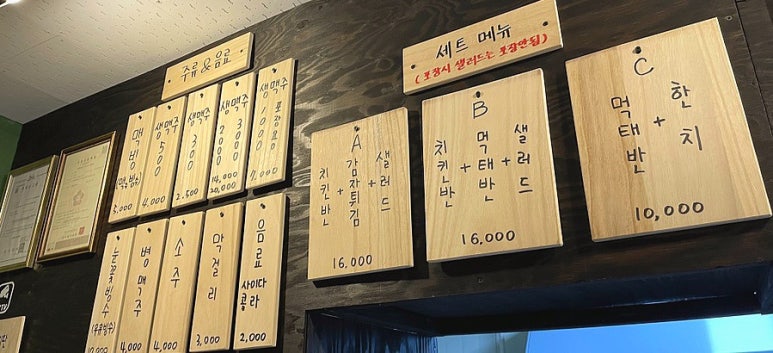 주류&음료
맥빙
(맥주빙수)
5,000
생맥주
500
4,000
생맥주
300
2,500
생맥주
2000
3000
14,000
20,000
생맥주
1000
포장용
7,000
눈꽃빙수
(우유빙수)
병맥주
4,000
소주
4,000
막걸리
3,000
음료
사이다
콜라
2,000
세트 메뉴
(포장시 샐러드는 포장안됨)
A
치킨반
+
감자튀김
+
샐러드
16,000
B
치킨반
+
먹태반
+
샐러드
16,000
C
먹태반
+
한치
10,000